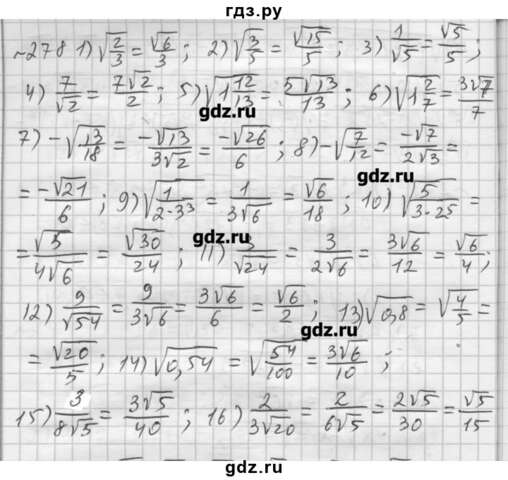 гдз.ру
№278 1) √(2/3) = √6/3 ; 2) √(3/5) = √15/5 ; 3) 1/√5 = √5/5 ;
4) 7/√2 = 7√2/2 ; 5) √(1 12/13) = 5√13/13 ; 6) √(1 2/7) = 3√7/7
гдз.ру
7) -√(13/18) = -√13/3√2 = -√26/6 ; 8) -√(7/12) = -√7/2√3 =
гдз.ру
= -√21/6 ; 9) √(1/2·3³) = 1/3√6 = √6/18 ; 10) √(5/3·2⁵) =
гдз.ру
= √5/4√6 = √30/24 ; 11) 3/√24 = 3/2√6 = 3√6/12 = √6/4 ;
12) 9/√54 = 9/3√6 = 3√6/6 = √6/2 ; 13) √0,8 = √(4/5) =
гдз.ру
= √20/5 ; 14) √0,54 = √(54/100) = 3√6/10 ;
15) 3/8√5 = 3√5/40 ; 16) 2/3√20 = 2/6√5 = 2√5/30 = √5/15
гдз.ру